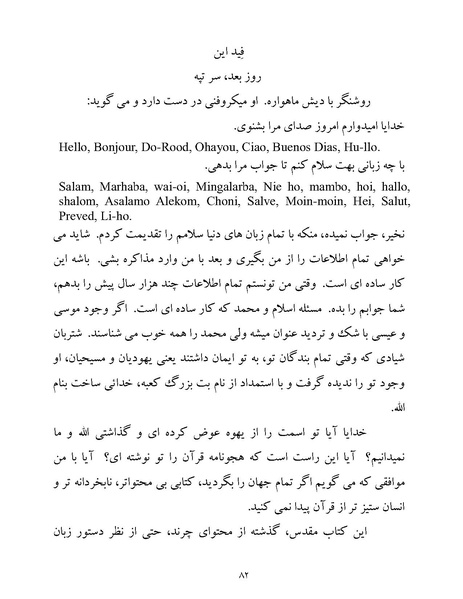 فِید این
روز بعد، سر تپه
روشنگر با دیش ماهواره. او میکروفنی در دست دارد و می گوید:
خدایا امیدوارم امروز صدای مرا بشنوی.
Hello, Bonjour, Do-Rood, Ohayou, Ciao, Buenos Dias, Hu-llo.
با چه زبانی بهت سلام کنم تا جواب مرا بدهی.
Salam, Marhaba, wai-oi, Mingalarba, Nie ho, mambo, hoi, hallo,
shalom, Asalamo Alekom, Choni, Salve, Moin-moin, Hei, Salut,
Preved, Li-ho.
نخیر، جواب نمیده، منکه با تمام زبان های دنیا سلامم را تقدیمت کردم. شاید می
خواهی تمام اطلاعات را از من بگیری و بعد با من وارد مذاکره بشی. باشه این
کار ساده ای است. وقتی من تونستم تمام اطلاعات چند هزار سال پیش را بدهم،
شما جوابم را بده. مسئله اسلام و محمد که کار ساده ای است. اگر وجود موسی
و عیسی با شک و تردید عنوان میشه ولی محمد را همه خوب می شناسند. شتربان
شیادی که وقتی تمام بندگان تو، به تو ایمان داشتند یعنی یهودیان و مسیحیان، او
وجود تو را ندیده گرفت و با استمداد از نام بت بزرگ کعبه، خدائی ساخت بنام
الله.
خدایا آیا تو اسمت را از یهوه عوض کرده ای و گذاشتی الله و ما
نمیدانیم؟ آیا این راست است که هجونامه قرآن را تو نوشته ای؟ آیا با من
موافقی که می گویم اگر تمام جهان را بگردید، کتابی بی محتواتر، نابخردانه تر و
انسان ستیز تر از قرآن پیدا نمی کنید.
این کتاب مقدس، گذشته از محتوای چرند، حتی از نظر دستور زبان
۸۲